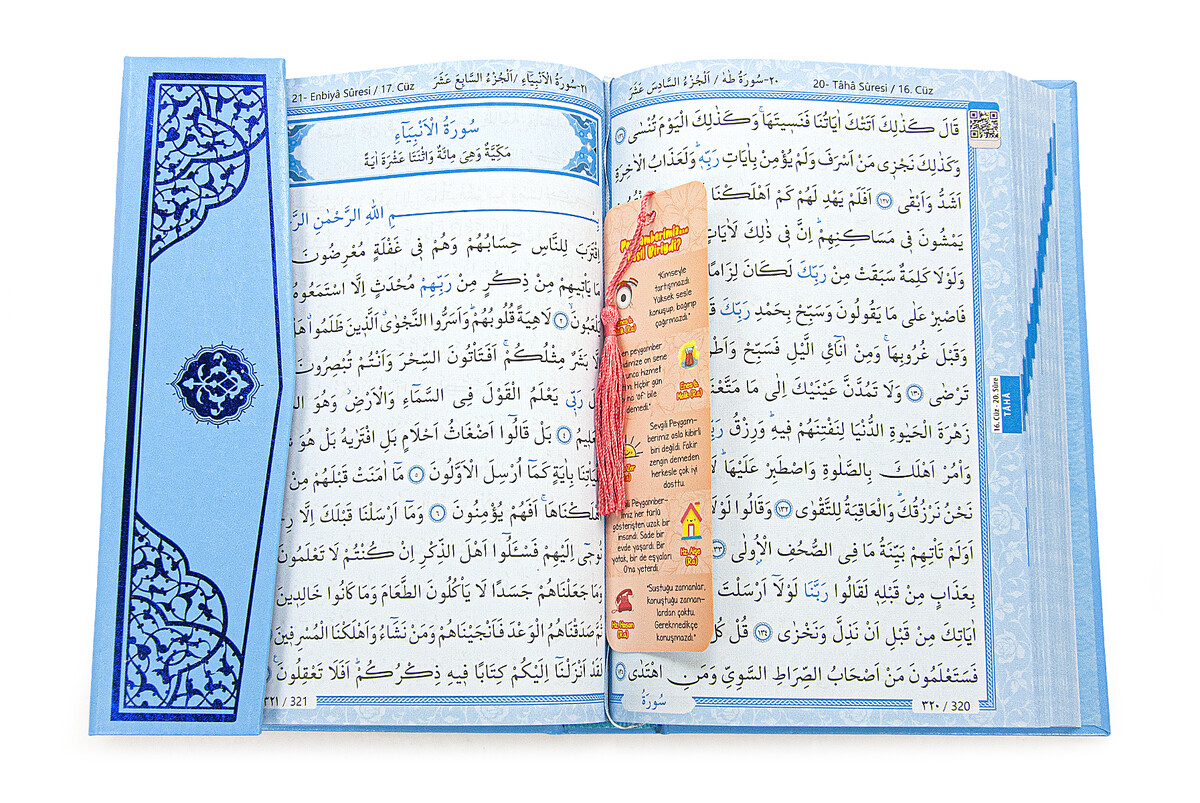 ٢٠-سُورَةُ طٰهٰ / اَلْجُزْءُ السَّادِسَ عَشَرَ
20- Tâhâ Sûresi / 16. Cüz
قَالَ كَذٰلِكَ اَتَتْكَ اٰيَاتُنَا فَنَسٖيتَهَاۚ وَكَذٰلِكَ الْيَوْمَ تُنْسٰى ﴿١٢٦﴾
وَكَذٰلِكَ نَجْزٖى مَنْ اَسْرَفَ وَلَمْ يُؤْمِنْ بِاٰيَاتِ رَبِّهٖؕ وَلَعَذَابُ الْاٰخِرَةِ
اَشَدُّ وَاَبْقٰى ﴿١٢٧﴾ اَفَلَمْ يَهْدِ لَهُمْ كَمْ اَهْلَكْنَا
يَمْشُونَ فٖى مَسَاكِنِهِمْؕ اِنَّ فٖى ذٰلِكَ لَاٰيَاتٍ
وَلَوْلَا كَلِمَةٌ سَبَقَتْ مِنْ رَبِّكَ لَكَانَ لِزَامًا
فَاصْبِرْ عَلٰى مَا يَقُولُونَ وَسَبِّحْ بِحَمْدِ رَبِّكَ
وَقَبْلَ غُرُوبِهَاۚ وَمِنْ اٰنَآئِ الَّيْلِ فَسَبِّحْ
تَرْضٰى ﴿١٣٠﴾ وَلَا تَمُدَّنَّ عَيْنَيْكَ اِلٰى مَا
زَهْرَةَ الْحَيٰوةِ الدُّنْيَا لِنَفْتِنَهُمْ فٖيهِؕ وَرِزْقُ
وَأْمُرْ اَهْلَكَ بِالصَّلٰوةِ وَاصْطَبِرْ عَلَيْهَاؕ
نَحْنُ نَرْزُقُكَؕ وَالْعَاقِبَةُ لِلتَّقْوٰى ﴿١٣٢﴾ وَقَالُوا
اَوَلَمْ تَأْتِهِمْ بَيِّنَةُ مَا فِى الصُّحُفِ الْاُولٰى
بِعَذَابٍ مِنْ قَبْلِهٖ لَقَالُوا رَبَّنَا لَوْلَٓا اَرْسَلْتَ
اٰيَاتِكَ مِنْ قَبْلِ اَنْ نَذِلَّ وَنَخْزٰى ﴿١٣٤﴾ قُلْ
فَسَتَعْلَمُونَ مَنْ اَصْحَابُ الصِّرَاطِ السَّوِىِّ وَمَنِ اهْتَدٰى ﴿١٣٥﴾
سُورَةُ
٣٢٠ / 320
16. Cüz - 20. Sûre
TÂHÂ
"Kimseyle
tartışmazdı.
Yüksek sesle
konuşup, bağırıp
çağırmazdı."
peygamber
sene
hizmet
Hiçbir gün
'of' bile
demedi."
Enes b.
Malik (R.a)
Sevgili Peygam-
berimiz asla kibirli
biri değildi. Fakir
zengin demeden
herkesle çok iyi
dosttu.
Peygamber-
imiz her türlü
gösterişten uzak bir
insandı. Sade bir
evde yaşardı. Bir
yatak, bir de eşyaları
O'na yeterdi.
Hz. Aişe
(R.a)
"Sustuğu zamanlar,
konuştuğu zaman-
lardan çoktu.
Gerekmedikçe
konuşmazdı."
(R.a)
21- Enbiyâ Sûresi / 17. Cüz
٢١-سُورَةُ الْاَنْبِيَٓاءِ / اَلْجُزْءُ السَّابِعَ عَشَرَ
سُورَةُ الْاَنْبِيَٓاءِ
مَكِّيَّةٌ وَهِىَ مِائَةٌ وَاثْنَتَا عَشْرَةَ اٰيَةً
اللّٰهِ الرَّحْمٰنِ
اِقْتَرَبَ لِلنَّاسِ حِسَابُهُمْ وَهُمْ فٖى غَفْلَةٍ مُعْرِضُونَ
مَا يَأْتٖيهِمْ مِنْ ذِكْرٍ مِنْ رَبِّهِمْ مُحْدَثٍ اِلَّا اسْتَمَعُوهُ
يَلْعَبُونَۙ ﴿٢﴾ لَاهِيَةً قُلُوبُهُمْؕ وَاَسَرُّوا النَّجْوٰىۗ اَلَّذٖينَ ظَلَمُواۗ
بَشَرٌ مِثْلُكُمْۚ اَفَتَأْتُونَ السِّحْرَ وَاَنْتُمْ تُبْصِرُونَ
رَبّٖى يَعْلَمُ الْقَوْلَ فِى السَّمَٓاءِ وَالْاَرْضِؗ وَهُوَ
﴿٤﴾ بَلْ قَالُٓوا اَضْغَاثُ اَحْلَامٍ بَلِ افْتَرٰيهُ بَلْ هُوَ
بِاٰيَةٍ كَمَٓا اُرْسِلَ الْاَوَّلُونَ ﴿٥﴾ مَٓا اٰمَنَتْ قَبْلَهُمْ مِنْ
اَهْلَكْنَاهَاۚ اَفَهُمْ يُؤْمِنُونَ ﴿٦﴾ وَمَٓا اَرْسَلْنَا قَبْلَكَ اِلَّا
نُوحٖٓى اِلَيْهِمْ فَسْـَٔلُٓوا اَهْلَ الذِّكْرِ اِنْ كُنْتُمْ لَا تَعْلَمُونَ
وَمَا جَعَلْنَاهُمْ جَسَدًا لَا يَأْكُلُونَ الطَّعَامَ وَمَا كَانُوا خَالِدٖينَ
صَدَقْنَاهُمُ الْوَعْدَ فَاَنْجَيْنَاهُمْ وَمَنْ نَشَٓاءُ وَاَهْلَكْنَا الْمُسْرِفٖينَ
لَقَدْ اَنْزَلْنَٓا اِلَيْكُمْ كِتَابًا فٖيهِ ذِكْرُكُمْؕ اَفَلَا تَعْقِلُونَ
٣٢١ / 321